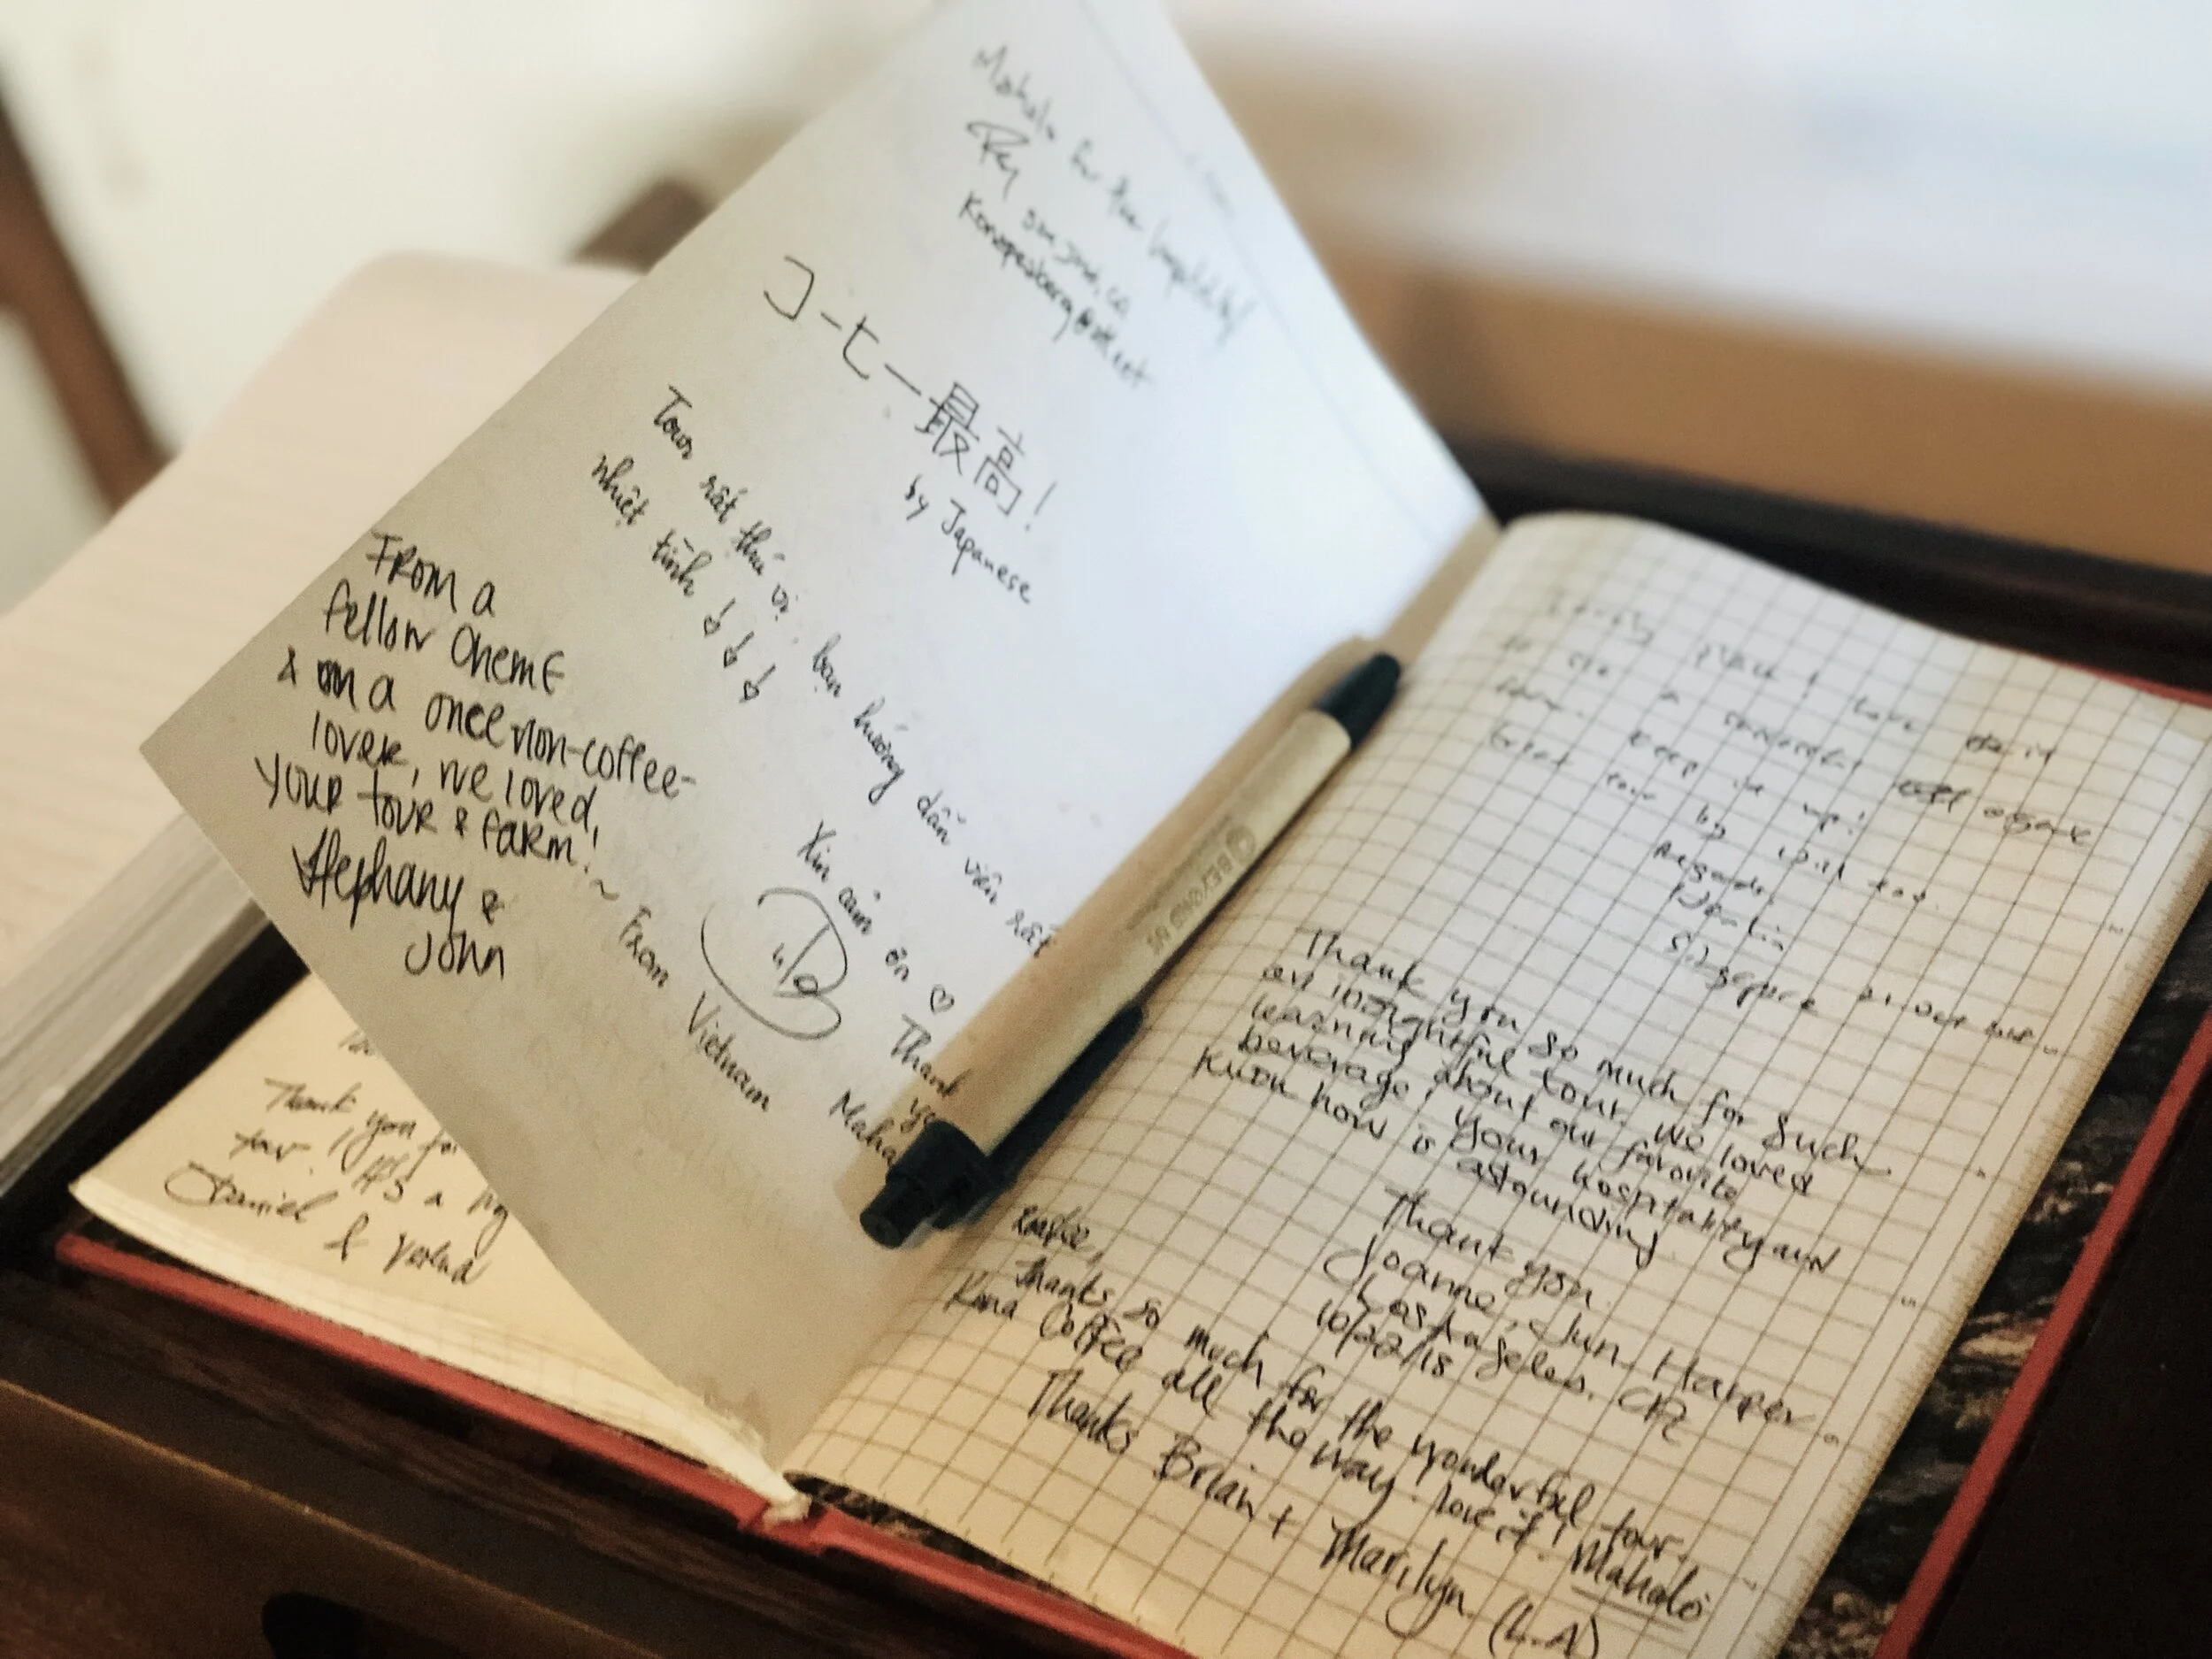 Mahalo for the hospitality!
Ray San Jose, CA
コーヒー最高!
by Japanese
Tour rất thú vị, bạn hướng dẫn viên rất
nhiệt tình
Xin cảm ơn ♡ Thank
Maha
~ From Vietnam
FROM a
fellow ChemE
& a once non-coffee-
lover, we loved
your tour & farm!
Stephany &
John
Thank you for
tour. It's a
Daniel &
Lovely place! Love
to see a
here. Keep it up!
Great tour by
Regards,
Singapore
Thank you so much for such
an insightful tour. We loved
learning about our favorite
beverage. Your hospitality and
know how is astounding.
Thank you.
Joanne, Jun Harper
Los Angeles, CA
10/22/18
Thanks so much for the wonderful tour.
Kona Coffee all the way. love it! Mahalo
Thanks Brian + Marilyn (L.A)
BEYOND US